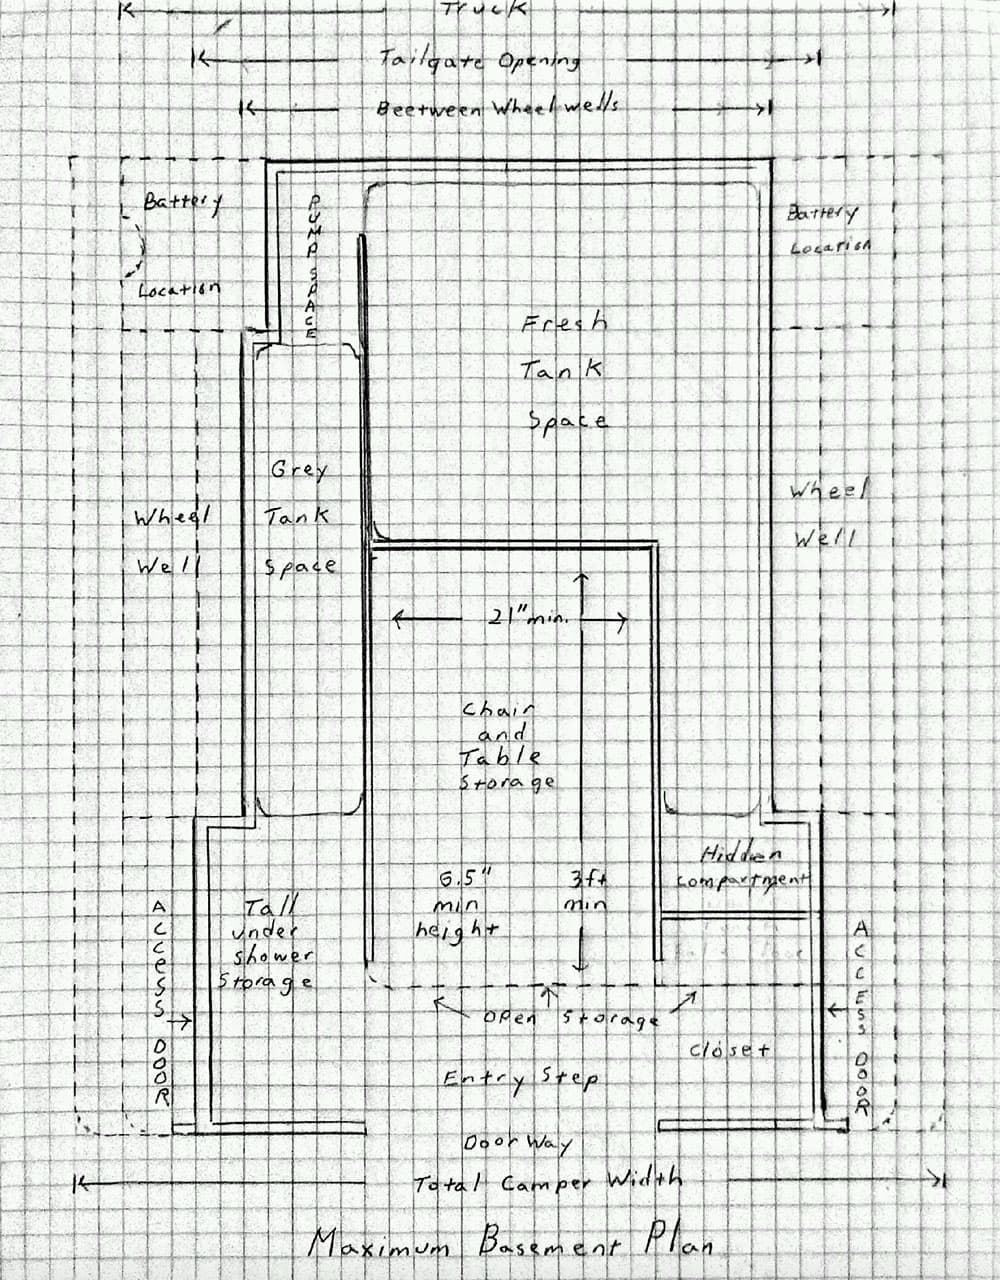 Truck
Tailgate Opening
Beetween Wheel wells
Battery
Location
PUMP SPACE
Battery
Location
Fresh
Tank
Space
Grey
Tank
Space
Wheel
Well
Wheel
Well
21" min.
Chair
and
Table
Storage
6.5"
min
height
3ft
min
Hidden
compartment
Tall
under
shower
Storage
ACCeSS DOOR
ACCESS DOOR
open storage
closet
Entry Step
Door Way
Total Camper Width
Maximum Basement Plan